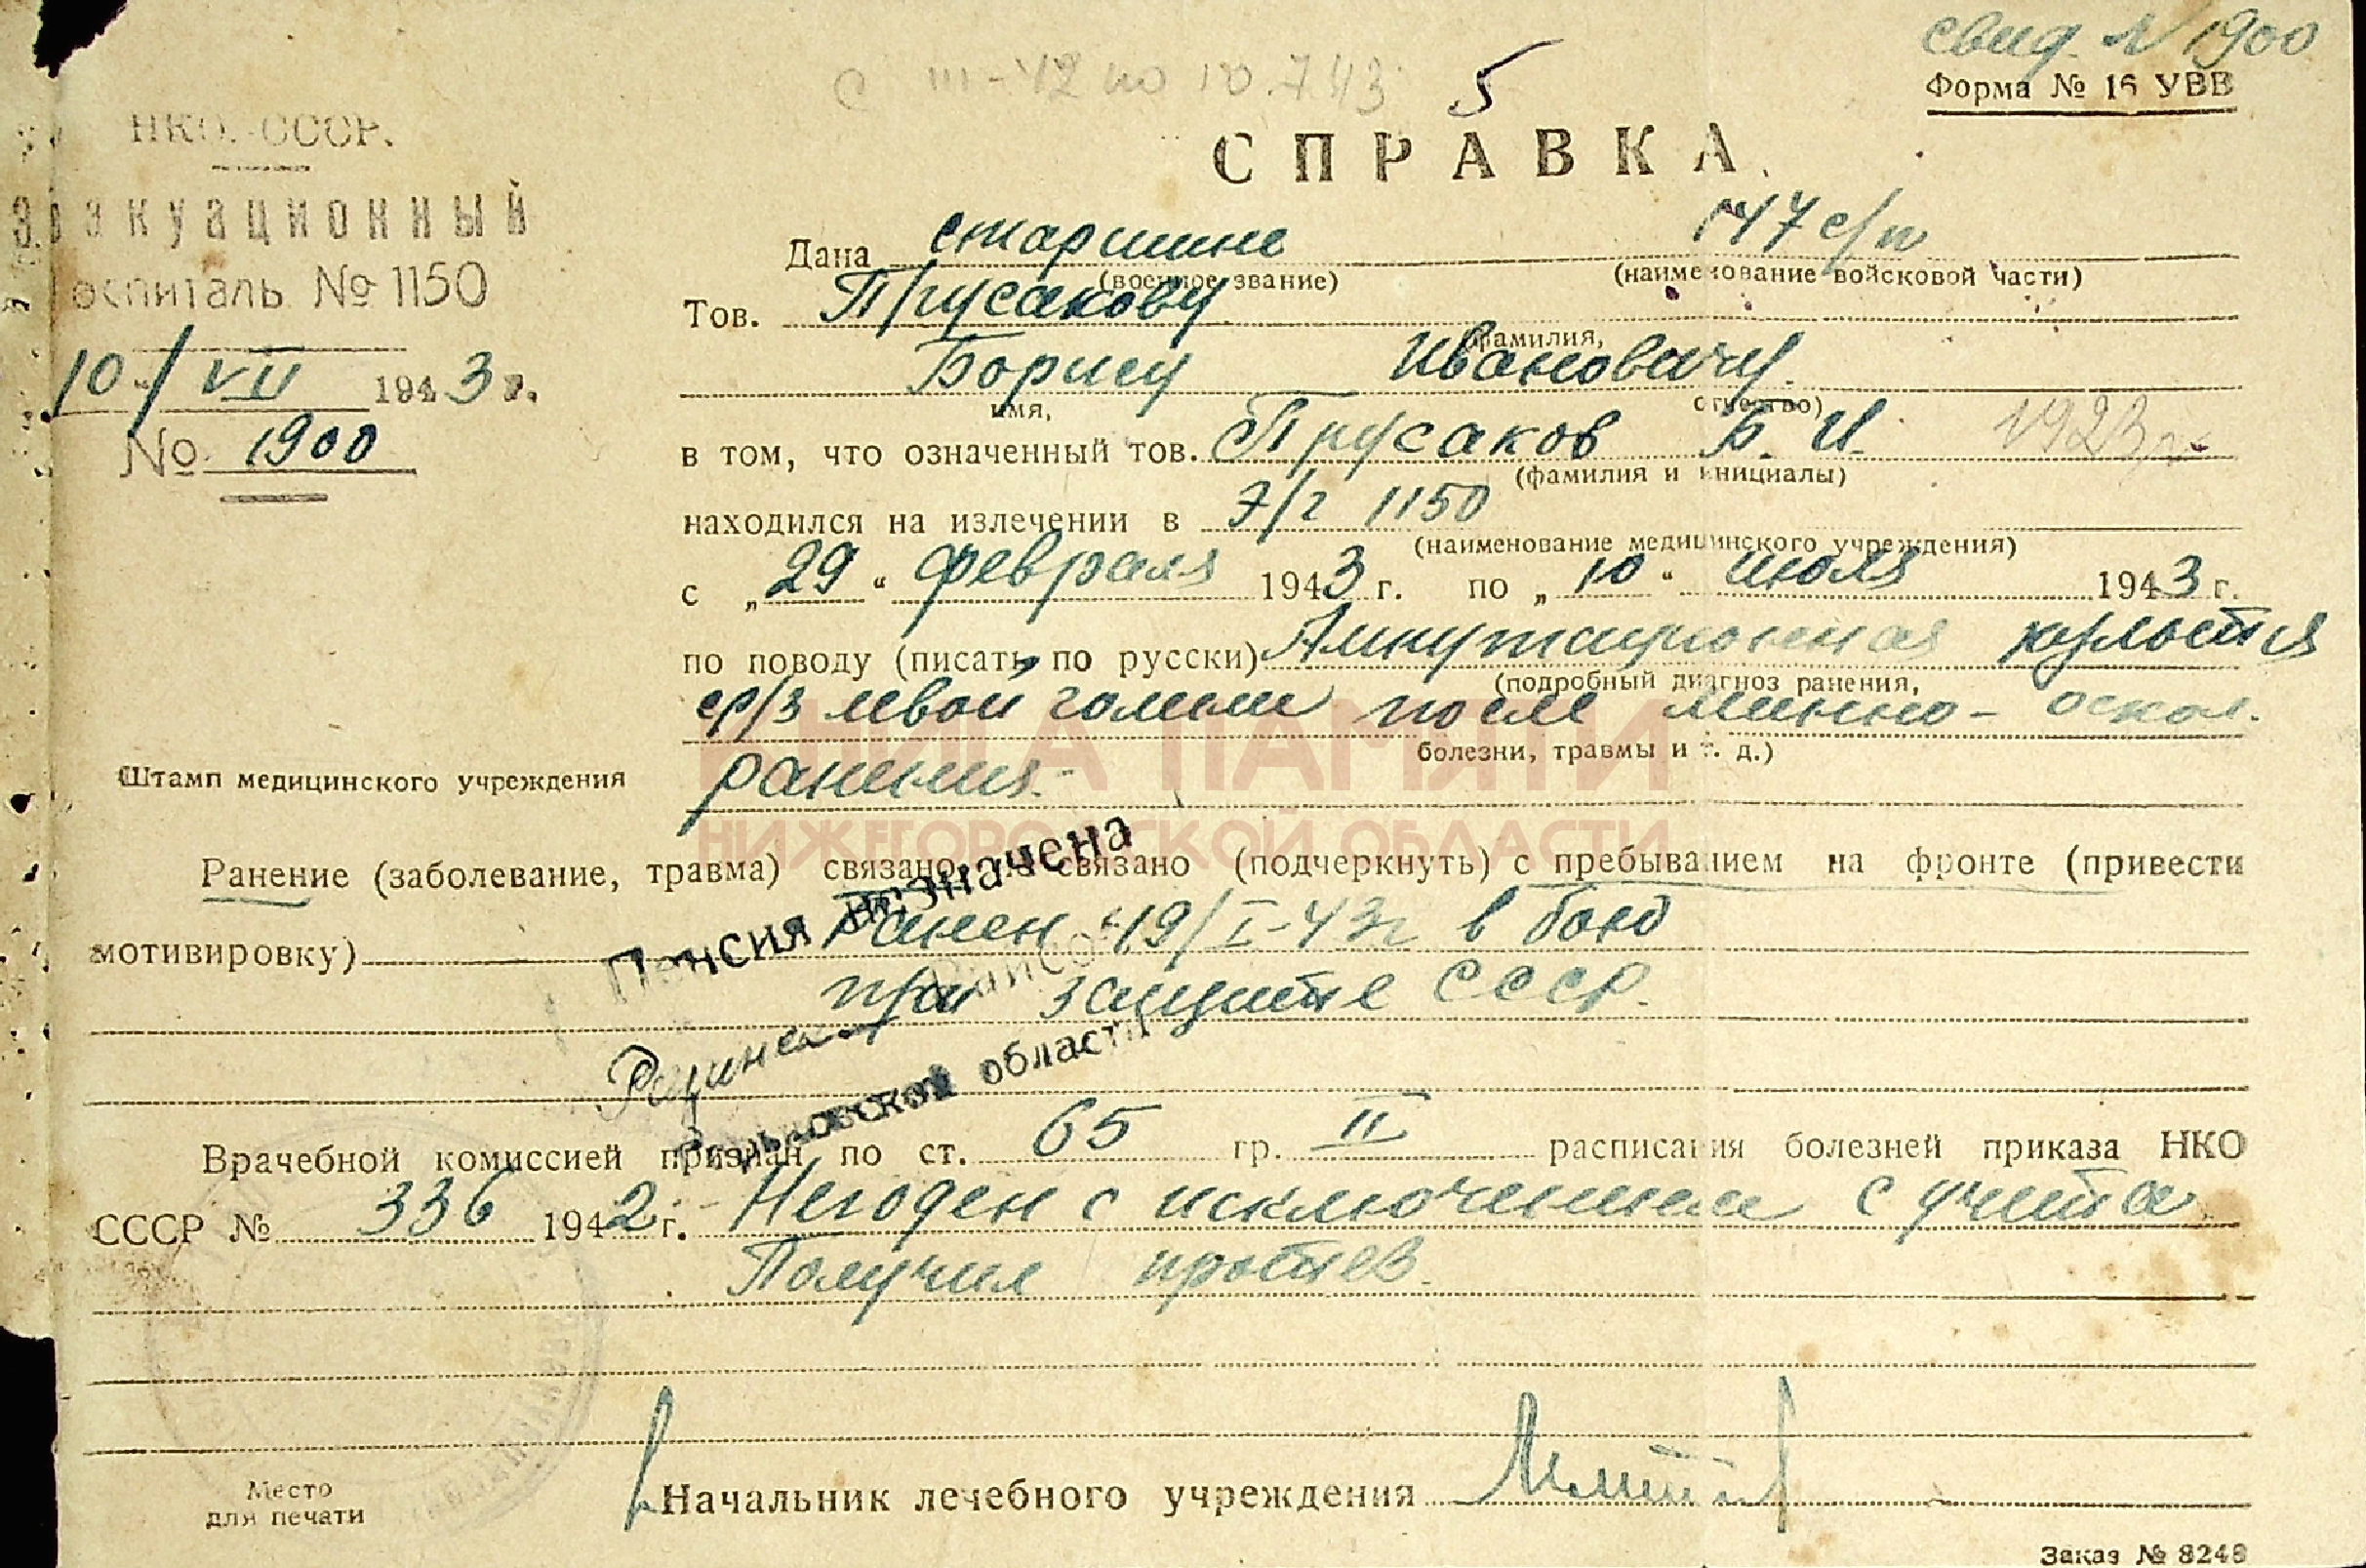 свид. N 1900
Форма № 16 УВВ
с III-42 по 10.7.43
5
СПРАВКА.
НКО. СССР.
Эвакуационный
госпиталь № 1150
10/VII 1943 г.
№ 1900
Штамп медицинского учреждения
Дана старшине 747 с/п
(военное звание) (наименование войсковой части)
Тов. Прусакову
(фамилия,
Борису Ивановичу.
имя, отчество)
в том, что означенный тов. Прусаков Б. И. 1923 г.
(фамилия и инициалы)
находился на излечении в Э/г 1150
(наименование медицинского учреждения)
с „29“ февраля 1943 г. по „10“ июля 1943 г.
по поводу (писать по русски) Ампутационная культя
(подробный диагноз ранения,
ср/3 левой голени после минно-оскол.
болезни, травмы и т. д.)
ранения.
КНИГА ПАМЯТИ
НИЖЕГОРОДСКОЙ ОБЛАСТИ
Ранение (заболевание, травма) связано, не связано (подчеркнуть) с пребыванием на фронте (привести
мотивировку) Ранен 19/I-43г в бою
при защите СССР.
Пенсия назначена
области
Врачебной комиссией признан по ст. 65 гр. II расписания болезней приказа НКО
СССР № 336 1942 г. Негоден с исключением с учета
Получил протез.
Место
для печати
Начальник лечебного учреждения
Заказ № 8248